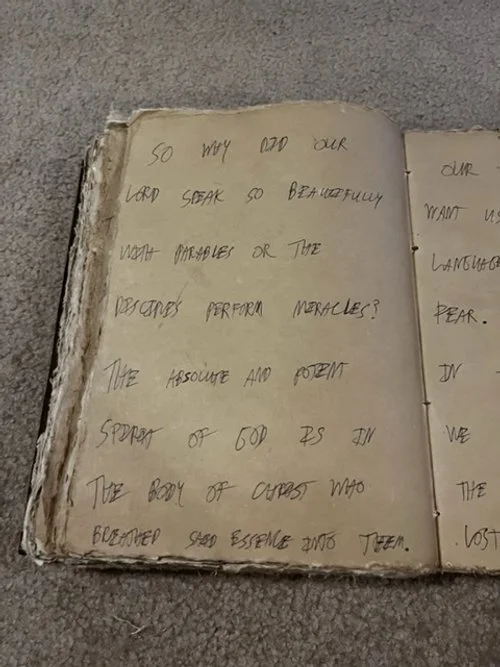 SO WHY DID OUR
LORD SPEAK SO BEAUTIFULLY
WITH PARABLES OR THE
DISCIPLES PERFORM MIRACLES?
THE ABSOLUTE AND POTENT
SPIRIT OF GOD IS IN
THE BODY OF CHRIST WHO
BREATHED SAID ESSENCE INTO THEM.
OUR
WANT US
LANGUAGE
PEAR.
IN
WE
THE
LOST